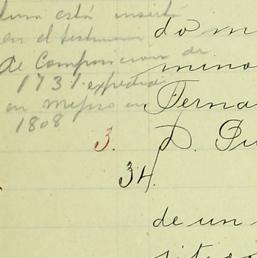 está
en el testimonio
de Composicion de
1731 expedido
en Mejico en
1808
do m
mino
Ferna
3. D. Gu
34.
de un